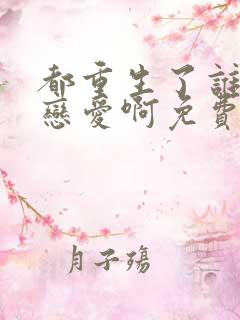 都重生了誰
戀愛啊免費
月子殤